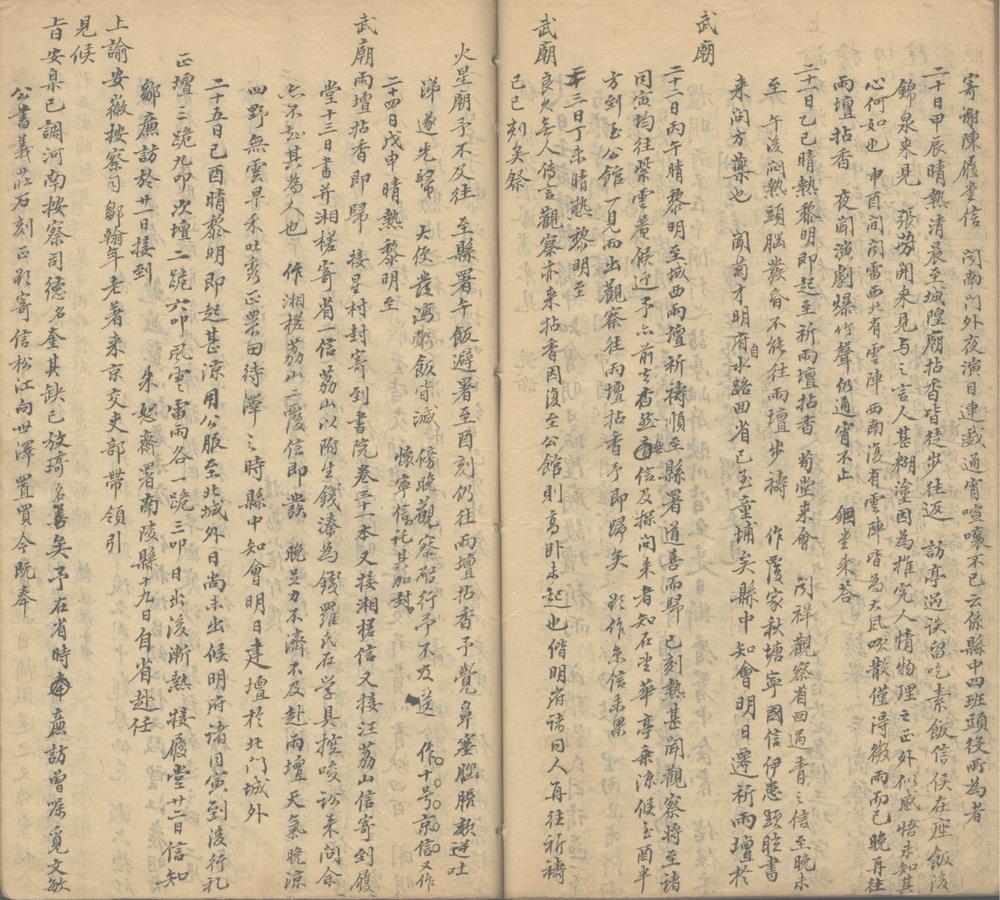 寄謝陳履堂信　閱南门外夜演目連戲通宵喧嚷不已云係縣中四班頭役所為者
二十日甲辰晴熱清晨至城隍廟拈香皆徒步往返　訪亭過談留吃素飯信侯在座飯後
錦泉來見　張芳開來見与之言人甚糊塗因為推究人情物理之正外似感悟未知其
心何如也　申酉间闻雷西北有雲陣西南復有雲陣皆為大風吹散僅得微雨而已晚再往
兩壇拈香　夜闻演劇爆竹聲仍通宵不止　錮堂來答
二十一日乙巳晴熱黎明即起至祈雨壇拈香　蔔堂來會　闻祥觀察省回過青之信至晚未
至　午後闷熱頭腦發昏不能往兩壇步禱　作覆家秋塘寧國信伊患頭眩書
來问方藥也　闻菊才明府自水路回省已至童埔矣縣中知會明日遷祈雨壇於
武廟
二十二日丙午晴黎明至城西雨壇祈禱順至縣署道喜而歸　已刻熱甚闻觀察將至諸
同寅均往榮雲菴候迎予亦前去杳無信及探问来者知在堂華亭乘涼候至酉半
方到至公館一見而出觀察往兩壇拈香予即歸矣　欲作京信未果
二十三日丁未晴熱　黎明至
武廟良久無人傳言觀察亦来拈香因復至公館則高卧未起也偕明府諸同人再往祈禱
已已刻矣祭
火星廟予不及往　至縣署午飯避暑至酉刻仍往兩壇拈香予覺鼻塞腦脹歘逆吐
涕遂先歸　大便發瀉粥飯皆減　傍晚觀察啟行予不及送　作十号京信又作
懷寧信託其加封
二十四日戊申晴熱黎明至
武廟兩壇拈香即歸　接星村封寄到書院卷三十一本又接湘槎信又接汪荔山信寄到履
堂十三日書并湘槎寄省一信荔山以附生錢溱為錢羅氏在学具控唆訟来问余
亡不知其為人也　作湘槎荔山二覆信即發　晚足力不濟不及赴兩壇天氣晚涼
四野無雲早禾吐秀正粟田待澤之時縣中知會明日建壇於北门城外
二十五日己酉晴黎明即起甚涼用公服至北城外日尚未出候明府諸同寅到後行礼
正壇三跪九叩次壇二跪六叩風雲雷雨各一跪三叩日出後漸熱　接履堂廿二日信知
鄒廉訪於廿一日接到　朱恕齋署南陵縣十九日自省赴任
上諭安徽按察司鄒翰年老著来京交吏部帶領引
見候
旨安臬已調河南按察司德名奎其缺已放琦名善矣予在省時廉訪曾嘱覓文敏
公書義莊石刻正欲寄信松江向世澤置買今既奉